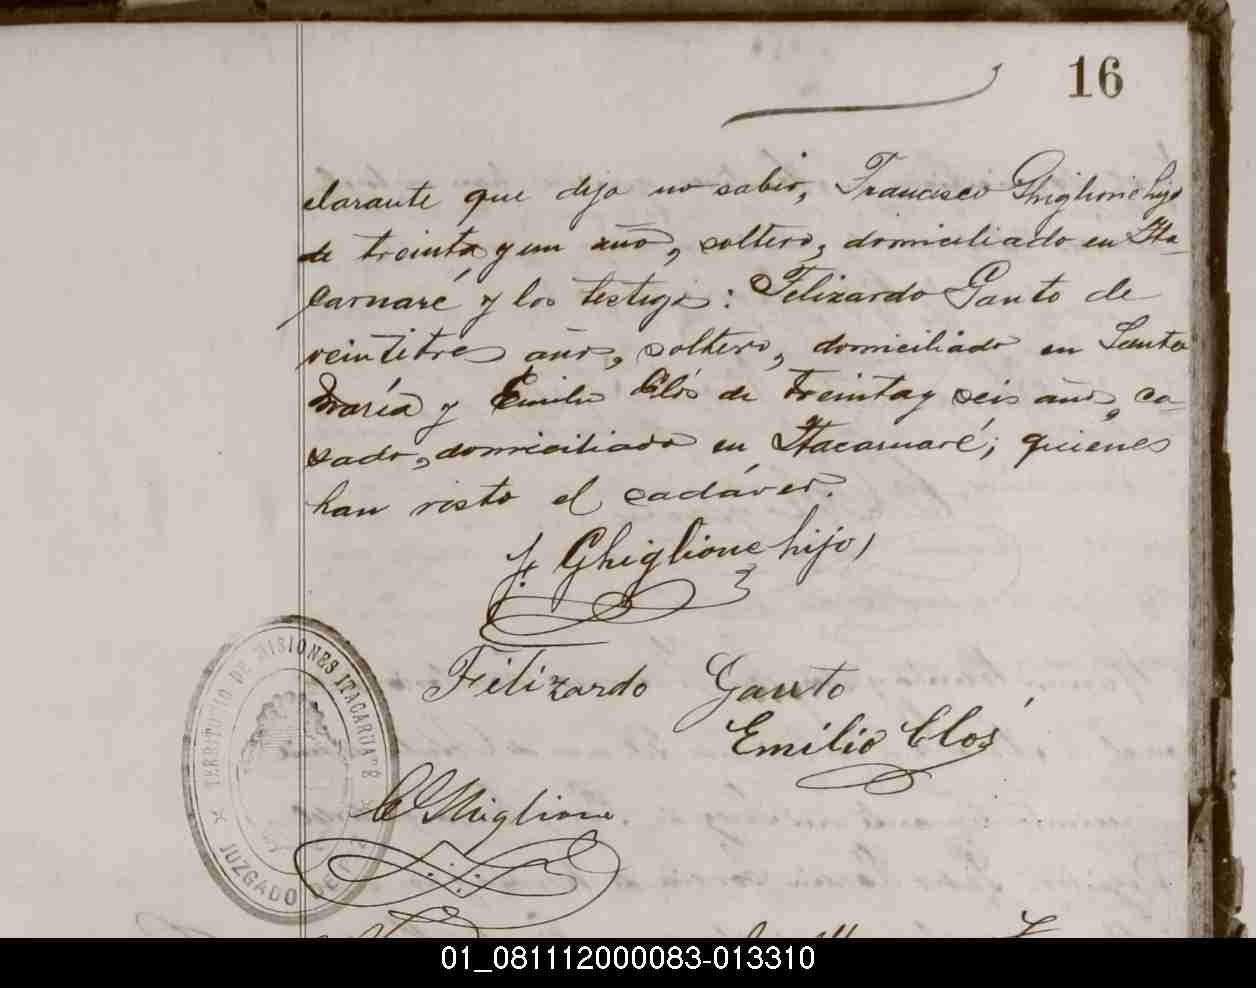 16
clarante que dijo no saber, Francisco Ghiglione hijo
de treinta y un año, soltero, domiciliado en Ita-
caruaré, y los testigos: Felizardo Gauto de
veintitres años, soltero, domiciliado en Santa
María y Emilio Clós de treinta y seis años, ca-
sado, domiciliado en Itacaruaré; quienes
han visto el cadáver.
F. Ghiglione hijo
Felizardo Gauto
Emilio Clós
C Ghiglione
TERRITORIO DE MISIONES ITACARUARÉ
JUZGADO DE
01_081112000083-013310